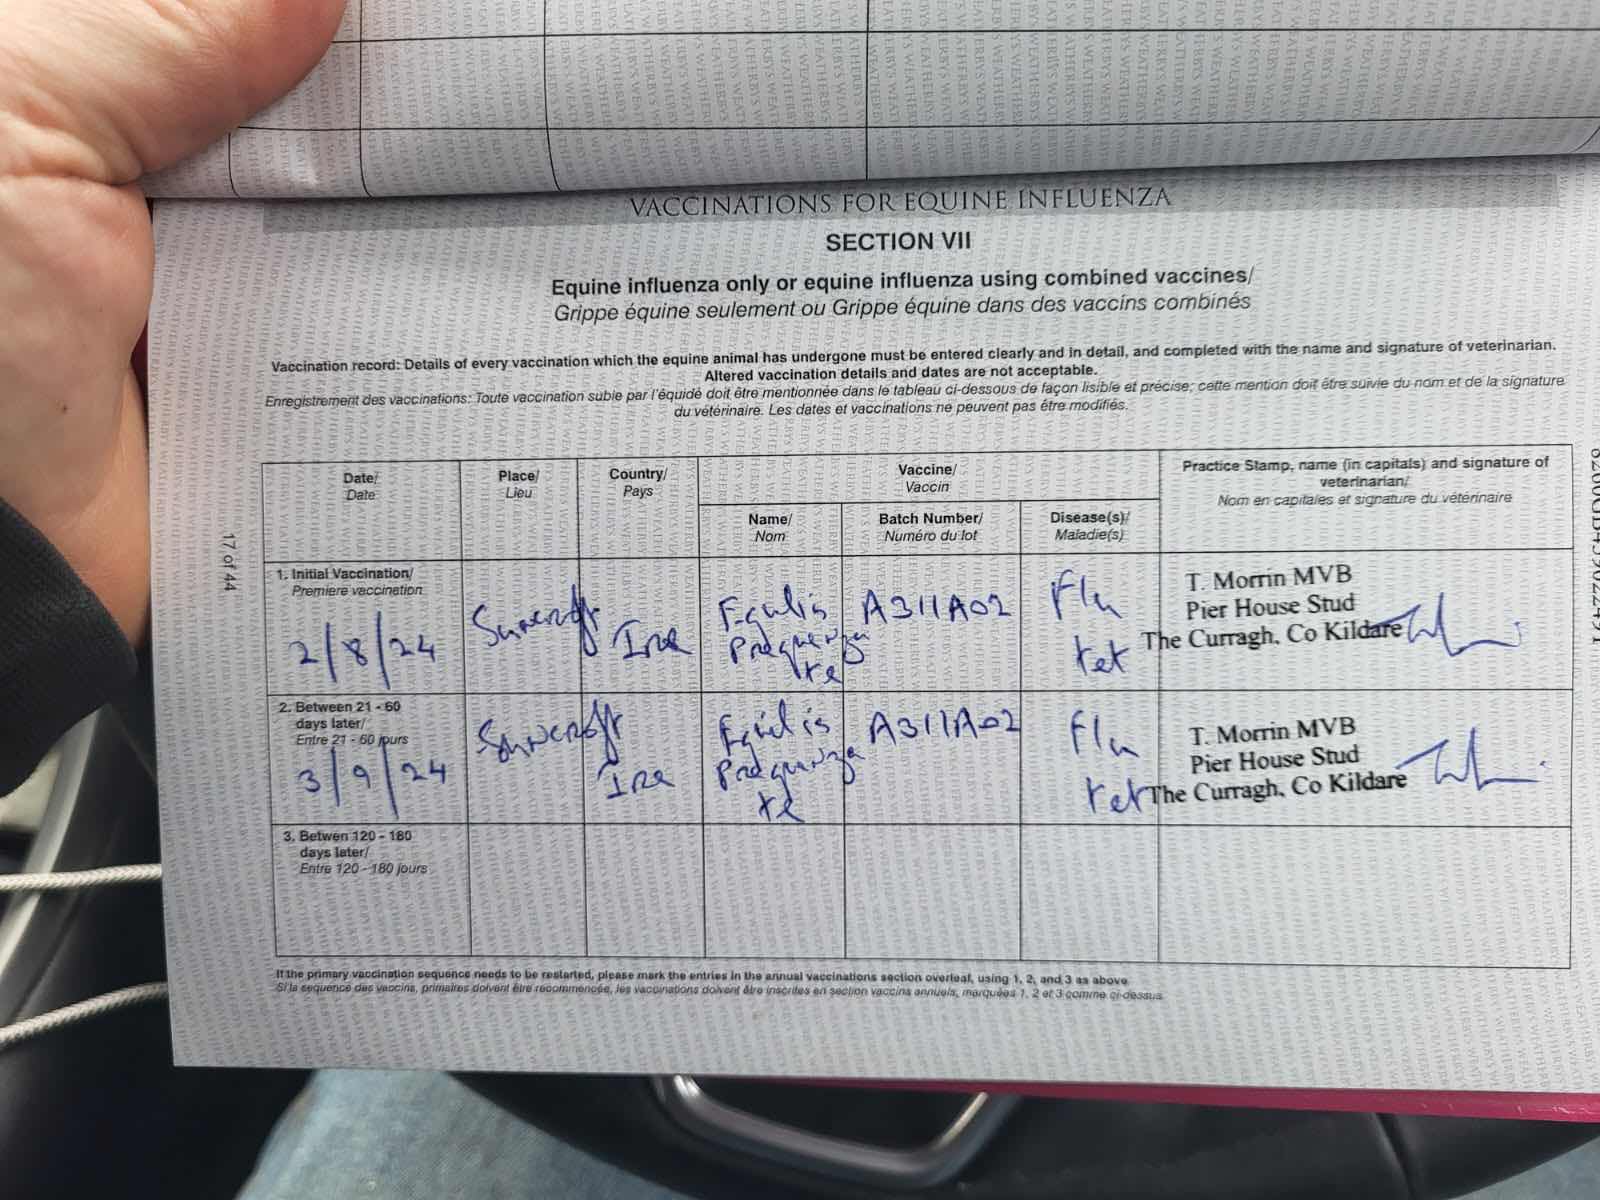 VACCINATIONS FOR EQUINE INFLUENZA
SECTION VII
Equine influenza only or equine influenza using combined vaccines/
Grippe équine seulement ou Grippe équine dans des vaccins combinés
Vaccination record: Details of every vaccination which the equine animal has undergone must be entered clearly and in detail, and completed with the name and signature of veterinarian.
Altered vaccination details and dates are not acceptable.
Enregistrement des vaccinations: Toute vaccination subie par l'équidé doit être mentionnée dans le tableau ci-dessous de façon lisible et précise; cette mention doit être suivie du nom et de la signature
du vétérinaire. Les dates et vaccinations ne peuvent pas être modifiés.
Date/
Date
Place/
Lieu
Country/
Pays
Vaccine/
Vaccin
Name/
Nom
Batch Number/
Numéro du lot
Disease(s)/
Maladie(s)
Practice Stamp, name (in capitals) and signature of
veterinarian/
Nom en capitales et signature du vétérinaire
1. Initial Vaccination/
Premiere vaccination
2/8/24
Suncroft
Ire
Equilis
Prequenza
te
A311A02
Flu
tet
T. Morrin MVB
Pier House Stud
The Curragh, Co Kildare
2. Between 21 - 60
days later/
Entre 21 - 60 jours
3/9/24
Suncroft
Ire
Equilis
Prequenza
te
A311A02
Flu
tet
T. Morrin MVB
Pier House Stud
The Curragh, Co Kildare
3. Betwen 120 - 180
days later/
Entre 120 - 180 jours
If the primary vaccination sequence needs to be restarted, please mark the entries in the annual vaccinations section overleaf, using 1, 2, and 3 as above
Si la sequence des vaccins, primaires doivent être recommencée, les vaccinations doivent être inscrites en section vaccins annuels, marquées 1, 2 et 3 comme ci-dessus
17 of 44